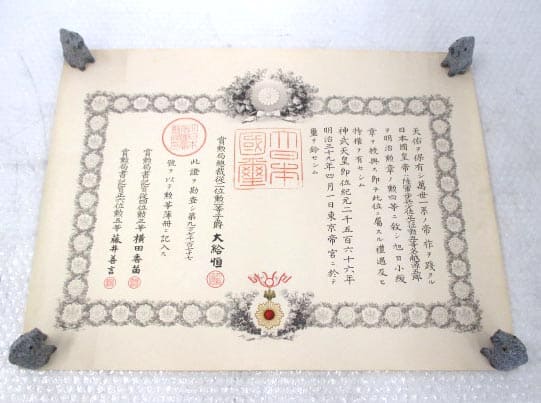 天佑ヲ保有シ萬世一系ノ帝祚ヲ踐タル
日本國皇帝ハ陸軍歩兵
ヲ明治勲章ノ勲四等ニ敍シ旭日小綬
章ヲ授與ス即チ此位ニ屬スル禮遇及ヒ
特權ヲ有セシム
神武天皇即位紀元二千五百六十六年
明治三十九年四月一日東京帝宮ニ於テ
璽ヲ鈐セシム
大日本
國璽
賞勲局總裁從二位勲一等子爵 大給恒
此證ヲ勘査シ第九
號ヲ以テ勲等簿册ニ記入ス
賞勲局書記官從四位勲三等 横田香苗
賞勲局書記官正六位勲五等 藤井善言